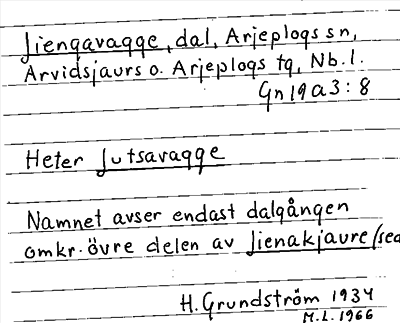 Jiengavagge, dal, Arjeplogs sn,
Arvidsjaurs o. Arjeplogs tg, Nb.l.
Gn 19 a 3:8
Heter Jutsavagge
Namnet avser endast dalgången
omkr. övre delen av Jienakjaure (sed
H. Grundström 1934
M.L. 1966